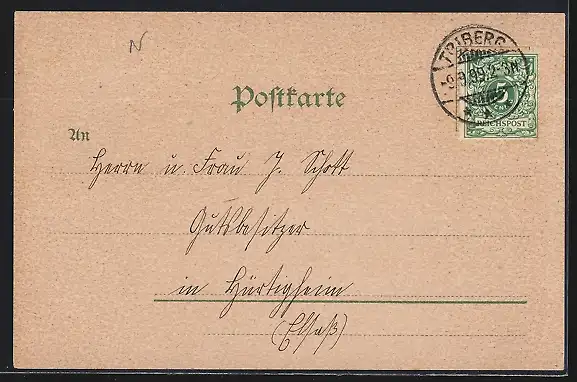 N
TRIBERG
9.99.2-3N
REICHSPOST
Postkarte
An
Herrn u. Frau J. Schott
Gutsbesitzer
in Hürtigheim
(Elsaß)